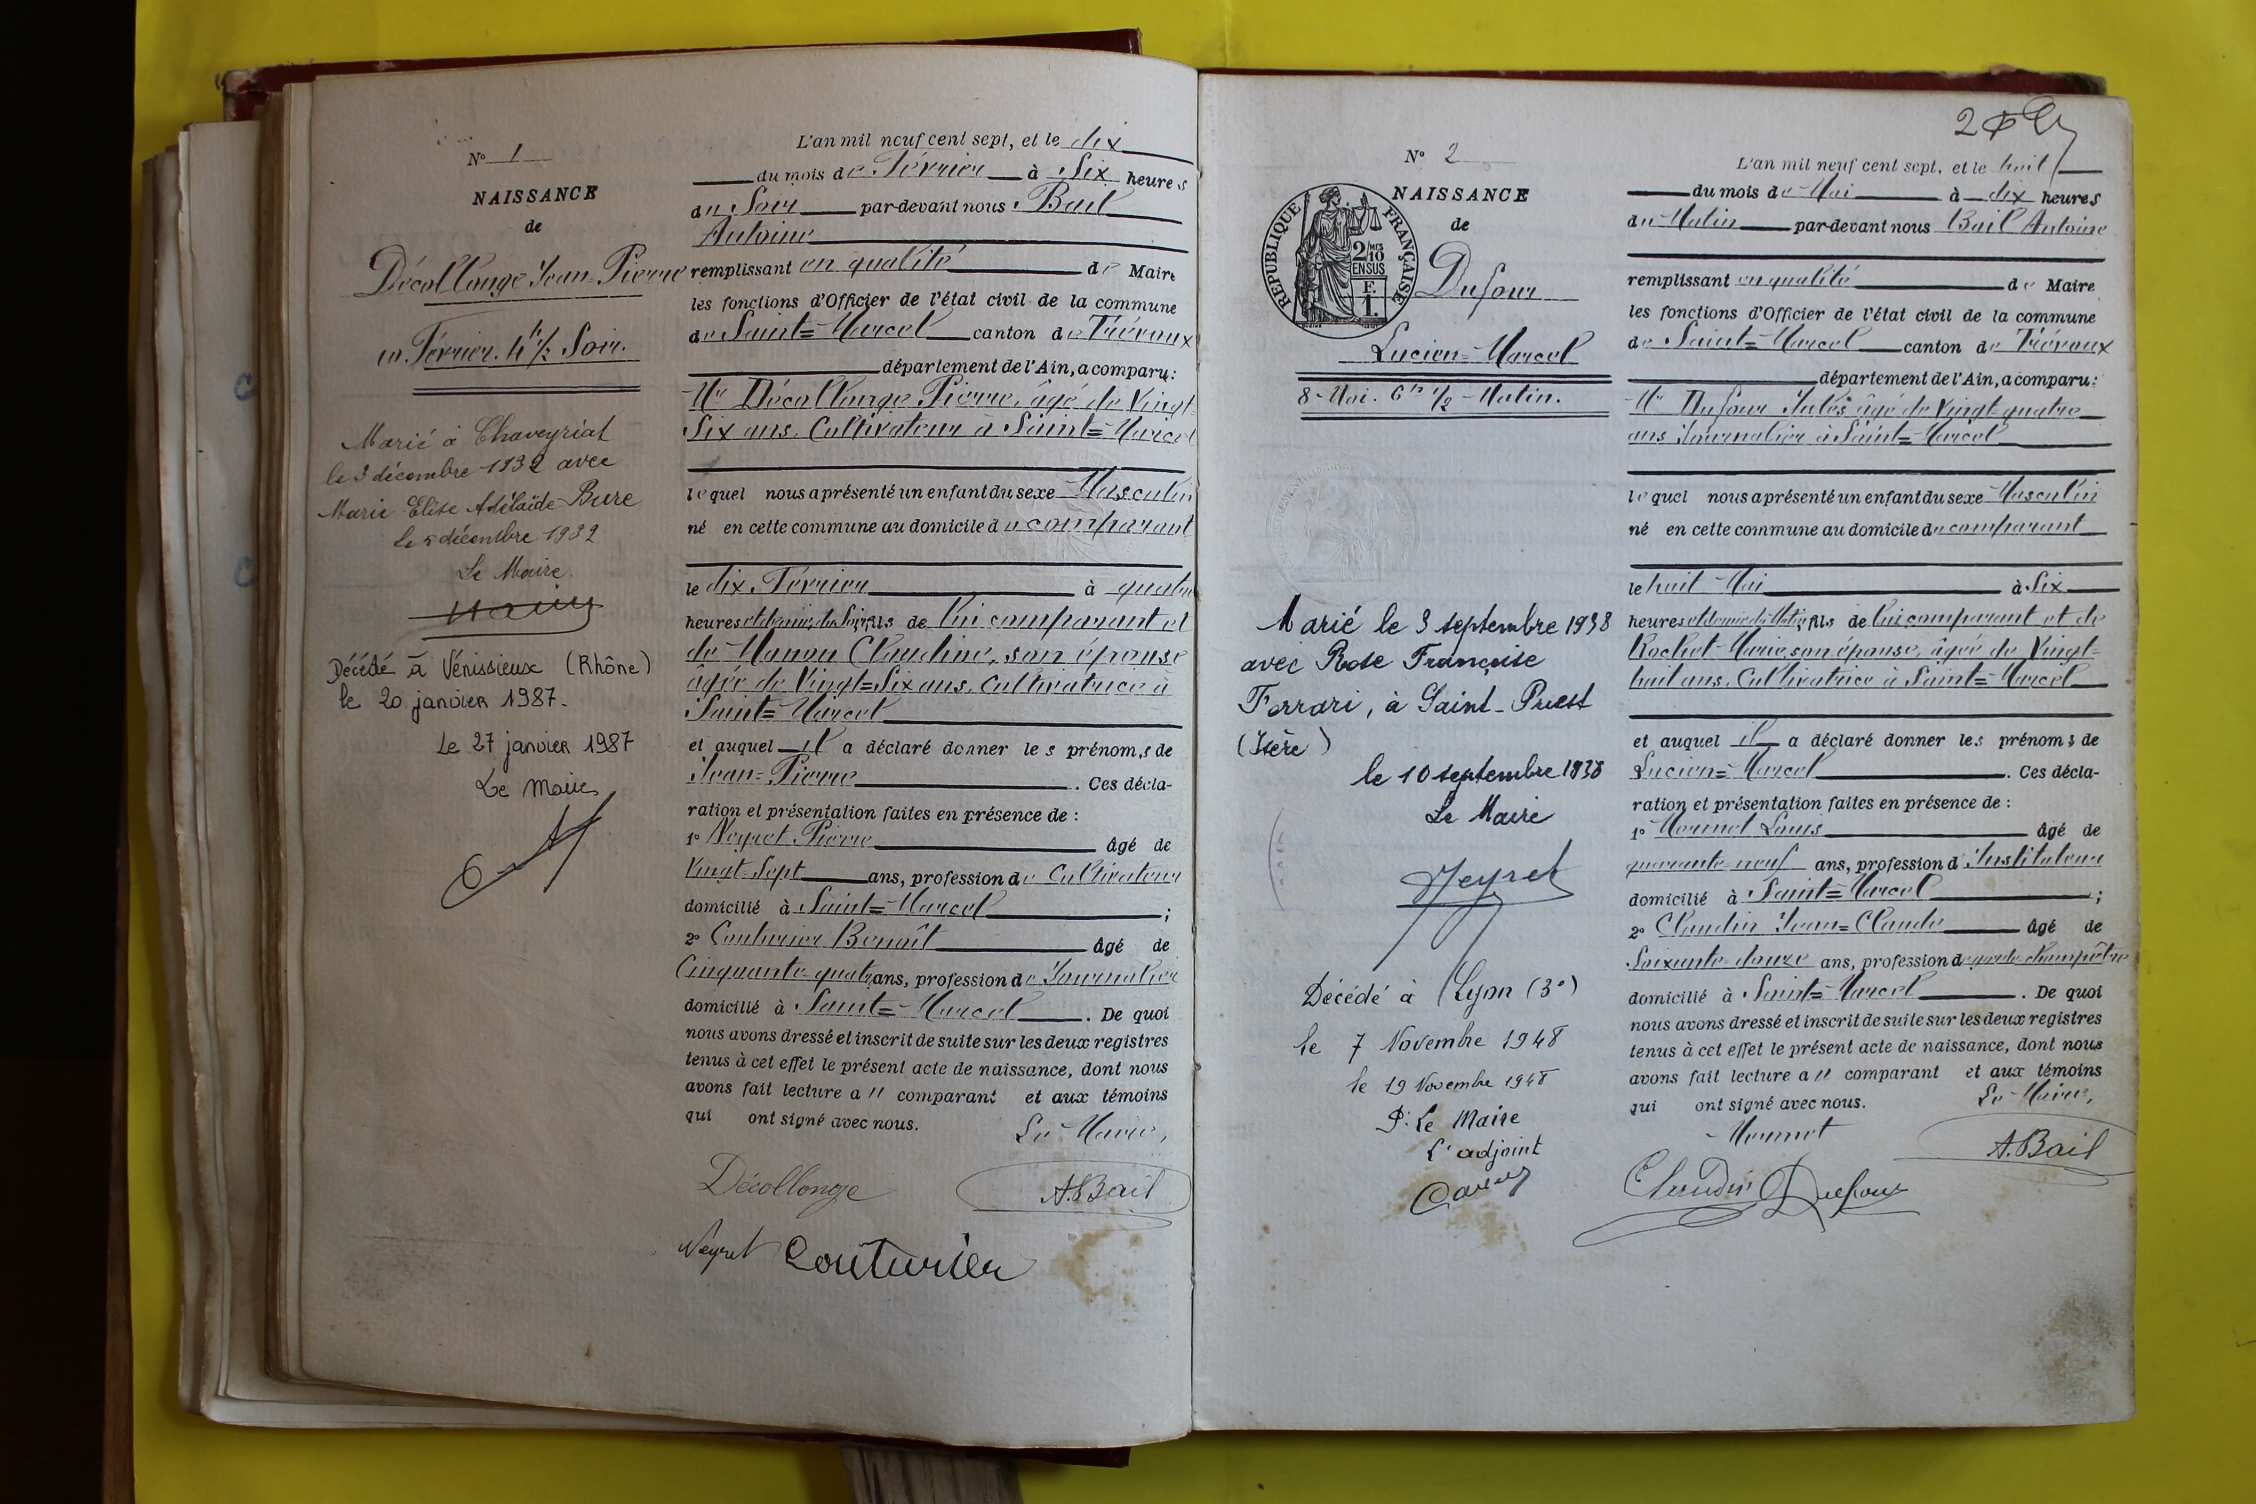 N° 1
NAISSANCE
de
Décollonge Jean-Pierre
10. Février. 4h 1/2 Soir.
Marié à Chaveyriat
le 3 décembre 1932 avec
Marie Elise Adélaïde Bure
le 5 décembre 1932
Le Maire
Décédé à Vénissieux (Rhône)
le 20 janvier 1987-
Le 27 janvier 1987
Le Maire
L'an mil neuf cent sept, et le dix
du mois de Février à Six heures
du Soir par-devant nous Bail
Antoine
remplissant en qualité de Maire
les fonctions d'Officier de l'état civil de la commune
de Saint=Marcel canton de Trévoux
département de l'Ain, a comparu:
Mr Décollonge Pierre, âgé de Vingt-
Six ans. Cultivateur à Saint=Marcel
lequel nous a présenté un enfant du sexe Masculin
né en cette commune au domicile du comparant
le dix Février à quatre
heures et demie du Soir, fils de lui comparant et
de Manon Claudine, son épouse
âgée de Vingt=Six ans. Cultivatrice à
Saint=Marcel
et auquel il a déclaré donner les prénoms de
Jean=Pierre. Ces décla-
ration et présentation faites en présence de :
1° Neyret Pierre âgé de
Vingt-Sept ans, profession de Cultivateur
domicilié à Saint=Marcel ;
2° Couturier Benoît âgé de
Cinquante-quatre ans, profession de Journalier
domicilié à Saint=Marcel. De quoi
nous avons dressé et inscrit de suite sur les deux registres
tenus à cet effet le présent acte de naissance, dont nous
avons fait lecture au comparant et aux témoins
qui ont signé avec nous.
Le Maire,
Décollonge A.Bail
Neyret Couturier
2
N° 2
NAISSANCE
de
RÉPUBLIQUE FRANÇAISE
2/10
EN SUS
F.
1.
Dufour
Lucien=Marcel
8-Mai. 6h 1/2-Matin.
Marié le 3 septembre 1938
avec Rose Françoise
Ferrari, à Saint-Priest
(Isère)
le 10 septembre 1938
Le Maire
Neyret
Décédé à Lyon (3e)
le 7 Novembre 1948
le 19 Novembre 1948
P: Le Maire
L'adjoint
L'an mil neuf cent sept, et le huit
du mois de Mai à dix heures
du Matin par-devant nous Bail Antoine
remplissant en qualité de Maire
les fonctions d'Officier de l'état civil de la commune
de Saint=Marcel canton de Trévoux
département de l'Ain, a comparu:
Mr Dufour Jules âgé de Vingt-quatre
ans Journalier à Saint=Marcel
lequel nous a présenté un enfant du sexe Masculin
né en cette commune au domicile du comparant
le huit Mai à Six
heures et demie du Matin, fils de lui comparant et de
Rochet Marie, son épouse, âgée de Vingt-
huit ans. Cultivatrice à Saint=Marcel
et auquel il a déclaré donner les prénoms de
Lucien=Marcel. Ces décla-
ration et présentation faites en présence de :
1° Monnet Louis âgé de
quarante-neuf ans, profession d'Instituteur
domicilié à Saint=Marcel ;
2° Claudin Jean=Claude âgé de
Soixante-douze ans, profession de garde-champêtre
domicilié à Saint=Marcel. De quoi
nous avons dressé et inscrit de suite sur les deux registres
tenus à cet effet le présent acte de naissance, dont nous
avons fait lecture au comparant et aux témoins
qui ont signé avec nous.
Le Maire,
Monnet A.Bail
Claudin Dufour